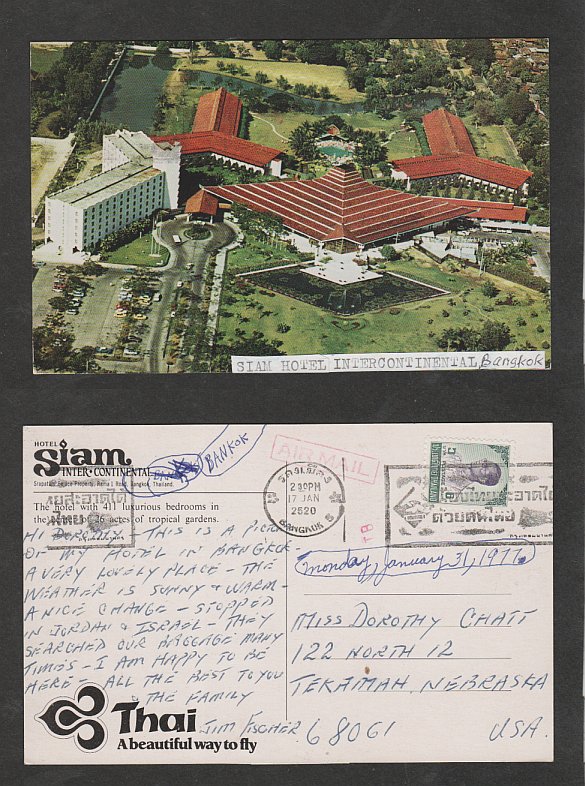 SIAM HOTEL INTERCONTINENTAL, Bangkok
HOTEL
Siam
INTER·CONTINENTAL
Srapatum Palace Property, Rama I Road, Bangkok, Thailand.
BANKOK
The hotel with 411 luxurious bedrooms in
the 26 acres of tropical gardens.
HI DOROTHY - THIS IS A PICTURE
OF MY HOTEL IN BANGKOK
A VERY LOVELY PLACE - THE
WEATHER IS SUNNY & WARM -
A NICE CHANGE - STOPPED
IN JORDAN & ISRAEL - THEY
SEARCHED OUR BAGGAGE MANY
TIMES - I AM HAPPY TO BE
HERE - ALL THE BEST TO YOU
& THE FAMILY
JIM FISCHER
Thai
A beautiful way to fly
AIR MAIL
2 30PM
17 JAN
2520
BANGKOK 5
TB
Monday, January 31, 1977
MISS DOROTHY CHATT
122 NORTH 12
TEKAMAH, NEBRASKA
68061 USA.